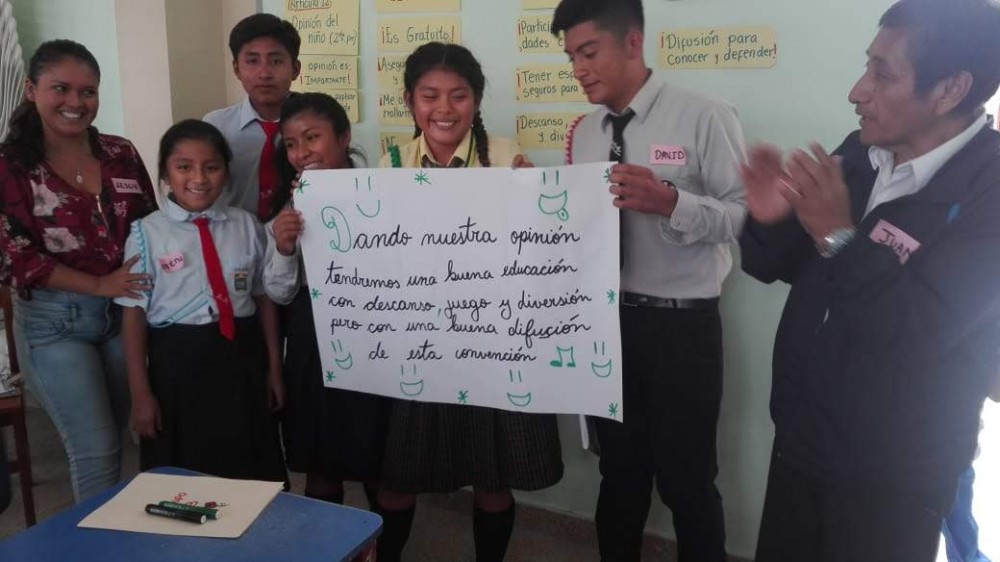 Artículo 12
Opinión del
niño (2do pm)
opinión es
¡IMPORTANTE!
¡Es Gratuito!
¡Difusión para
Conocer y defender!
¡Tener esp
seguros para
Descanso
y div
DAVID
JUAN
Dando nuestra opinión
tendremos una buena educación
con descanso, juego y diversión
pero con una buena difución
de esta convención